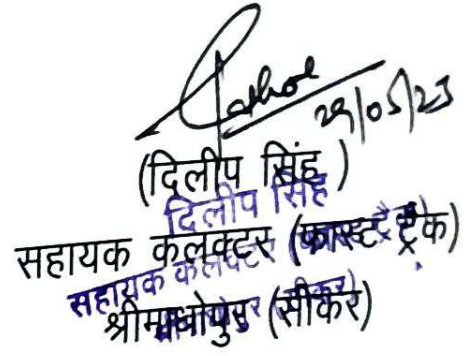 29/05/23
(दिलीप सिंह )
दिलीप सिंह
सहायक कलक्टर (फास्ट ट्रैक)
सहायक कलक्टर
श्रीमाधोपुर (सीकर)